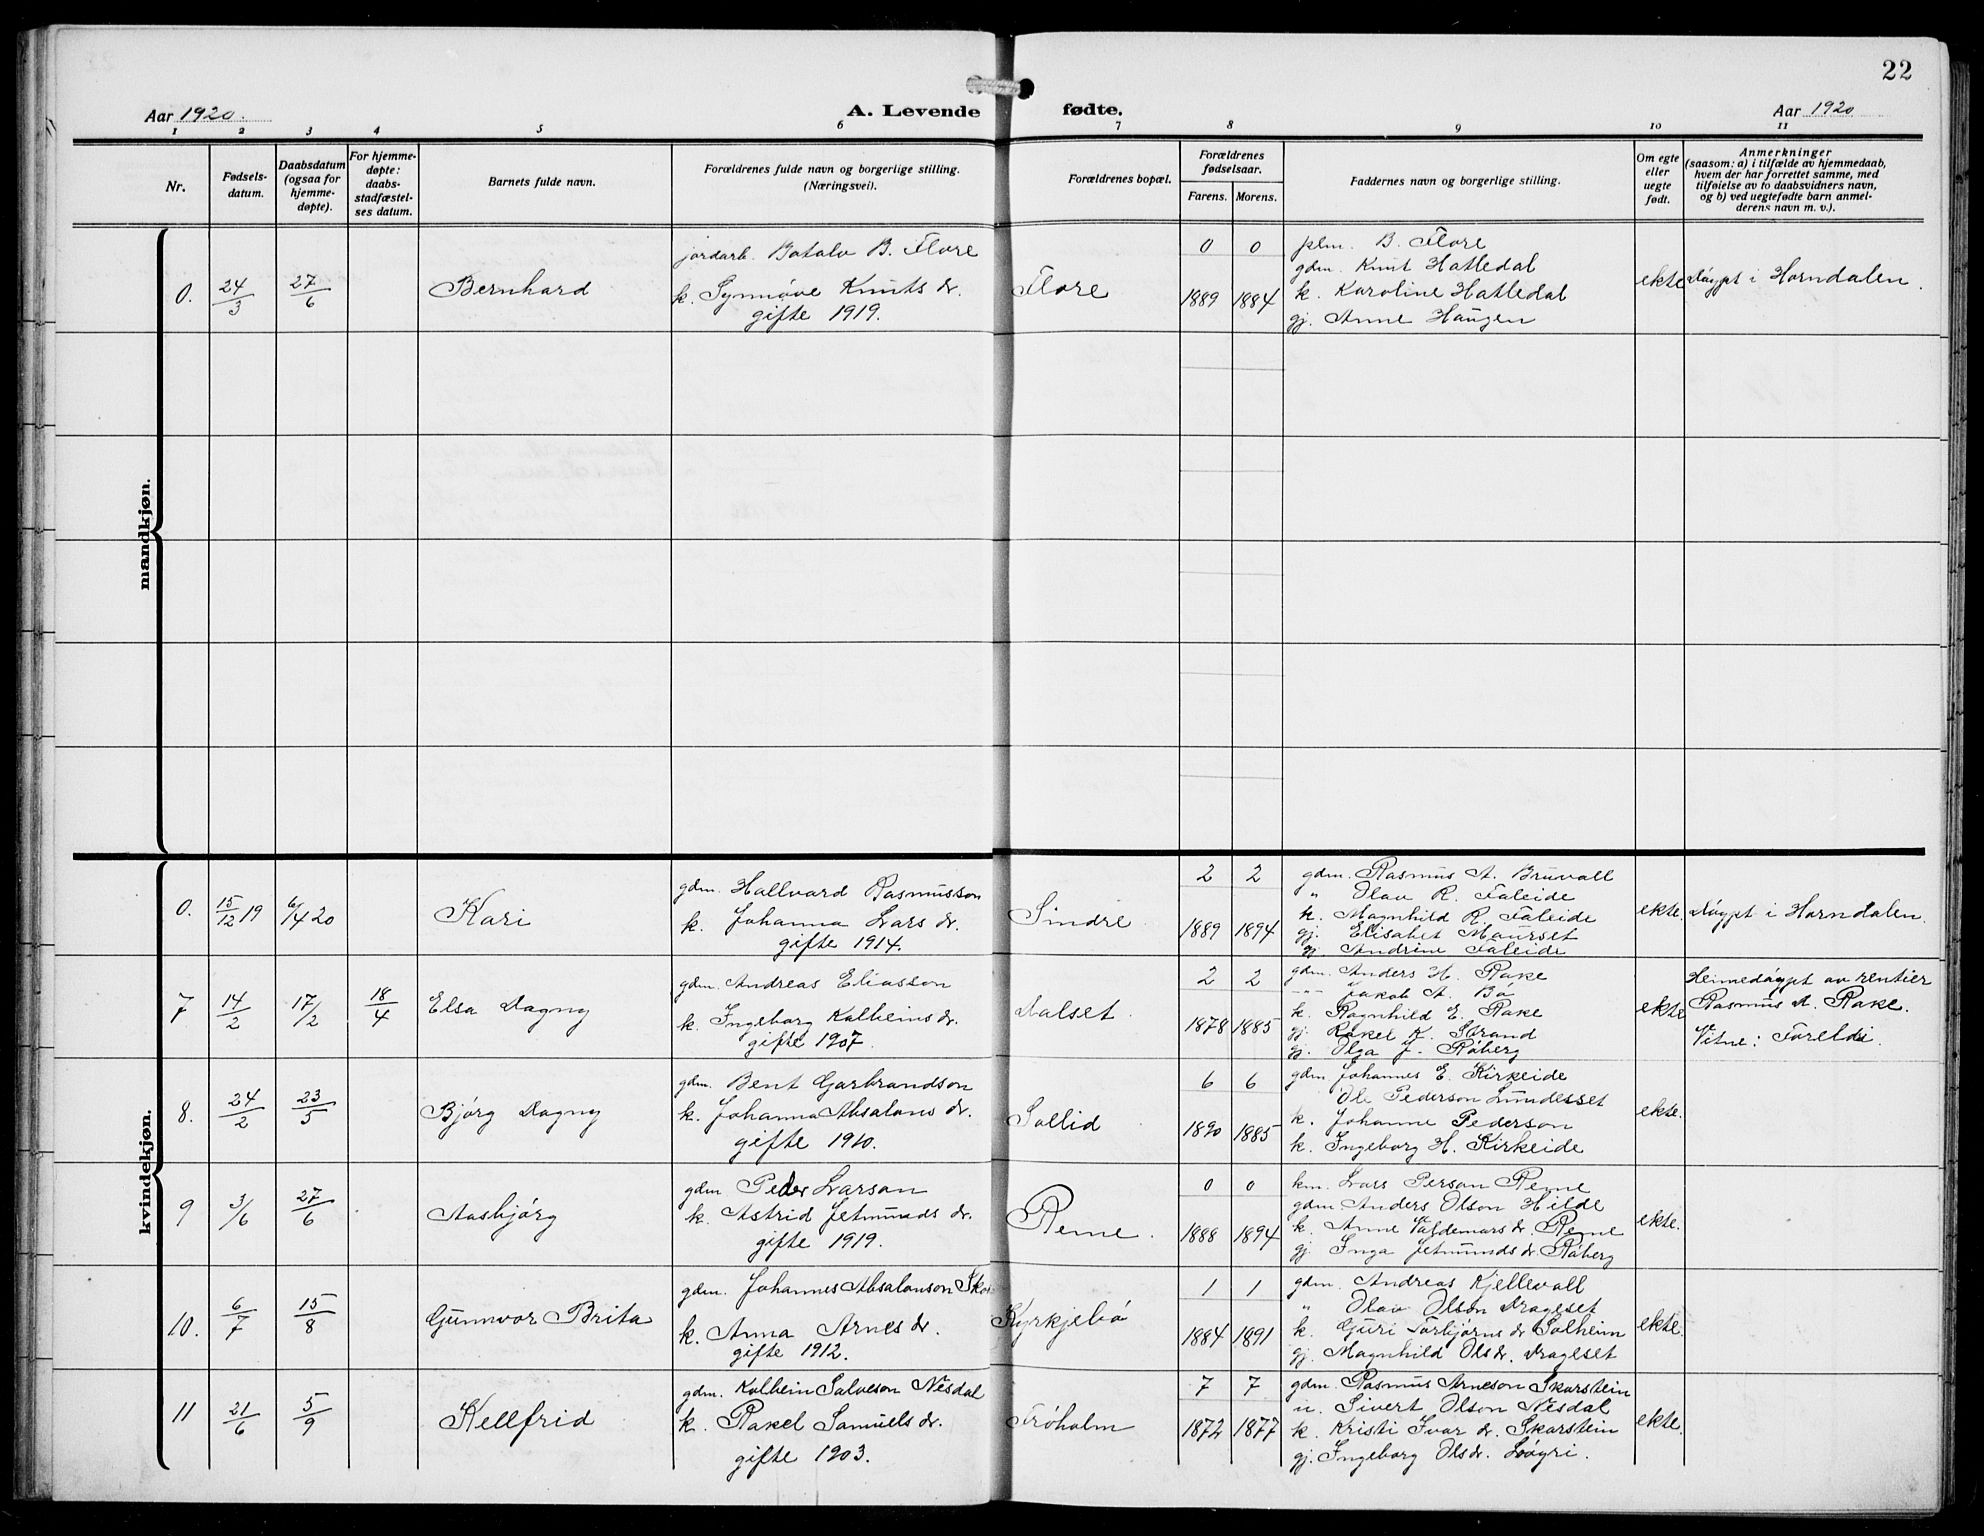 22
Aar 1920.
A. Levende
fødte.
Aar 1920
1 2 3 4 5 6 7 8 9 10 11
Nr.
Fødsels-
datum.
Daabsdatum
(ogsaa for
hjemme-
døpte).
For hjemme-
døpte:
daabs-
stadfæstel-
ses datum.
Barnets fulde navn.
Forældrenes fulde navn og borgerlige stilling.
(Næringsvei).
Forældrenes bopæl.
Forældrenes
fødselsaar.
Farens. Morens.
Faddernes navn og borgerlige stilling.
Om egte
eller
uegte
født.
Anmerkninger
(saasom: a) i tilfælde av hjemmedaab,
hvem der har forrettet samme, med
tilføielse av to daabsvidners navn,
og b) ved uegtefødte barn anmel-
derens navn m. v.).
mandkjøn.
0. 24/3 27/6
Bernhard
jordarb. Botolv B. Flore
k. Synnøve Knuts dr.
gifte 1919.
Flore
0 0
1889 1884
plm. B. Flore
gdm. Knut Hatledal
k. Karoline Hatledal
gj. Anne Haugen
ekte
Døypt i Horndalen.
kvindekjøn.
0. 15/12 19 6/14 20
Kari
gdm. Hallvard Rasmusson
k. Johanna Lars dr.
gifte 1914.
Sindre
2 2
1889 1894
gdm. Rasmus A. Bruvoll
" Olav R. Faleide
k. Magnhild R. Faleide
gj. Elisabet Maurset
gj. Andrine Faleide
ekte.
Døypt i Horndalen.
7 14/2 17/2 18/4
Elsa Dagny
gdm. Andreas Eliasson
k. Ingeborg Kolbeins dr.
gifte 1907.
Dalset.
2 2
1878 1885
gdm. Anders H. Rake
-"- Jakob A. Bø
k. Ragnhild E. Rake
gj. Rakel K. Strand
gj. Olga J. Røberg
ekte
Heimedøypt av rentier
Rasmus A. Rake.
Vitne: Foreldri.
8. 24/2 23/5
Bjørg Dagny
gdm. Bent Garbrandson
k. Johanna Absalons dr.
gifte 1910.
Sollid
6 6
1890 1885
gdm. Johannes E. Kirkeide
" Ole Pederson Lundesset
k. Johanne Pederson
k. Ingeborg H. Kirkeide
ekte.
9 3/6 27/6
Aasbjørg
gdm Peder Larson
k. Astrid Jetmunds dr.
gifte 1919.
Reme.
0 0
1888 1894
km. Lars Person Reme
gdm Anders Olson Hilde
k. Anne Valdemars dr. Reme
gj. Inga Jetmunds dr. Røberg
ekte.
10. 6/7 15/8
Gunnvor Brita
gdm. Johannes Absalonson Skor
k. Anna Arnes dr.
gifte 1912.
Kyrkjebø
1 1
1884 1891
gdm. Andreas Kjellevoll
" Olav Olson Drageset
k. Guri Torbjørns dr. Solheim
gj. Magnhild Olsdr. Drageset
ekte.
11 21/6 5/9
Kellfrid
gdm. Kolbein Salveson Nesdal
k. Rakel Samuels dr.
gifte 1903.
Frøholm
7 7
1872 1877
gdm. Rasmus Arneson Skarstein
u. Sivert Olson Nesdal
k. Kristi Ivar dr. Skarstein
gj. Ingeborg Olsdr. Løygri.
ekte.